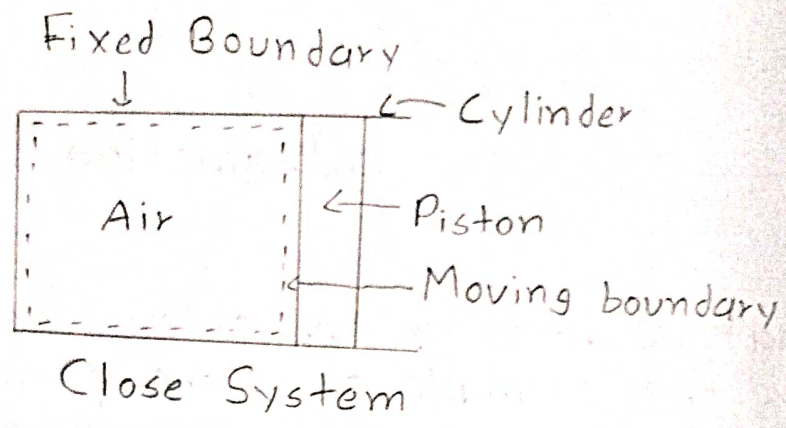 Fixed Boundary
Cylinder
Air
Piston
Moving boundary
Close System